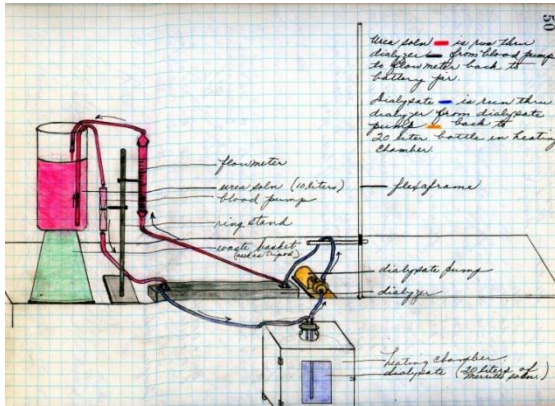 50
Urea soln is run thru
dialyzer from blood pump
to flowmeter back to
battery jar.
Dialysate is run thru
dialyzer from dialysate
pump back to
20 liter bottle in heating
chamber
flowmeter
urea soln (10 liters)
blood pump
ring stand
waste basket
(used as tripod)
flexaframe
dialysate pump
dialyzer
heating chamber
dialysate (20 liters of
soln.)